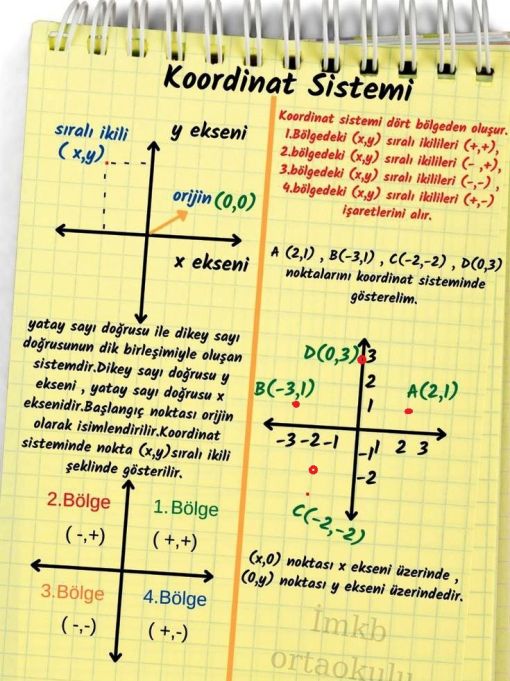 Koordinat Sistemi
sıralı ikili
( x,y)
y ekseni
orijin (0,0)
x ekseni
yatay sayı doğrusu ile dikey sayı
doğrusunun dik birleşimiyle oluşan
sistemdir.Dikey sayı doğrusu y
ekseni , yatay sayı doğrusu x
eksenidir.Başlangıç noktası orijin
olarak isimlendirilir.Koordinat
sisteminde nokta (x,y)sıralı ikili
şeklinde gösterilir.
2.Bölge
1.Bölge
( -,+)
( +,+)
3.Bölge
4.Bölge
( -,-)
( +,-)
Koordinat sistemi dört bölgeden oluşur.
1.Bölgedeki (x,y) sıralı ikilileri (+,+),
2.bölgedeki (x,y) sıralı ikilileri (- ,+),
3.bölgedeki (x,y) sıralı ikilileri (-,-) ,
4.bölgedeki (x,y) sıralı ikilileri (+,-)
işaretlerini alır.
A (2,1) , B(-3,1) , C(-2,-2) , D(0,3)
noktalarını koordinat sisteminde
gösterelim.
D(0,3) 3
B(-3,1)
2
A(2,1)
1
-3 -2 -1
1 2 3
-1
-2
C(-2,-2)
(x,0) noktası x ekseni üzerinde ,
(0,y) noktası y ekseni üzerindedir.
İmkb
ortaokulu